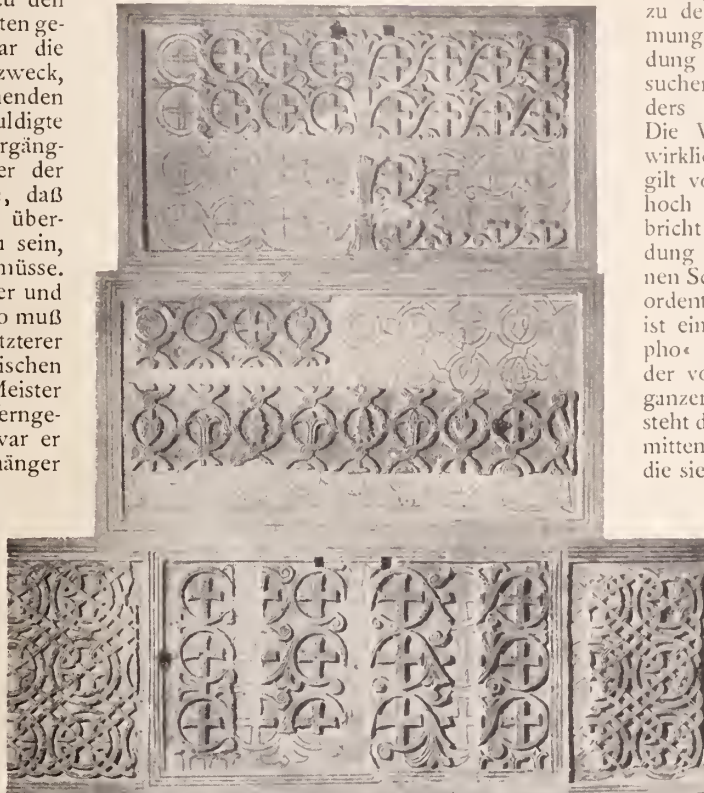 zu den
ten ge-
ar die
zweck,
enden
uldigte
rgäng-
er der
, daß
über-
n sein,
müsse.
er und
o muß
tzterer
ischen
Meister
ernge-
war er
hänger
zu de
mung
dung
suchen
ders
Die V
wirklic
gilt vo
hoch
bricht
dung
nen Sc
ordent
ist ein
pho«
der vo
ganzer
steht d
mitten
die sie